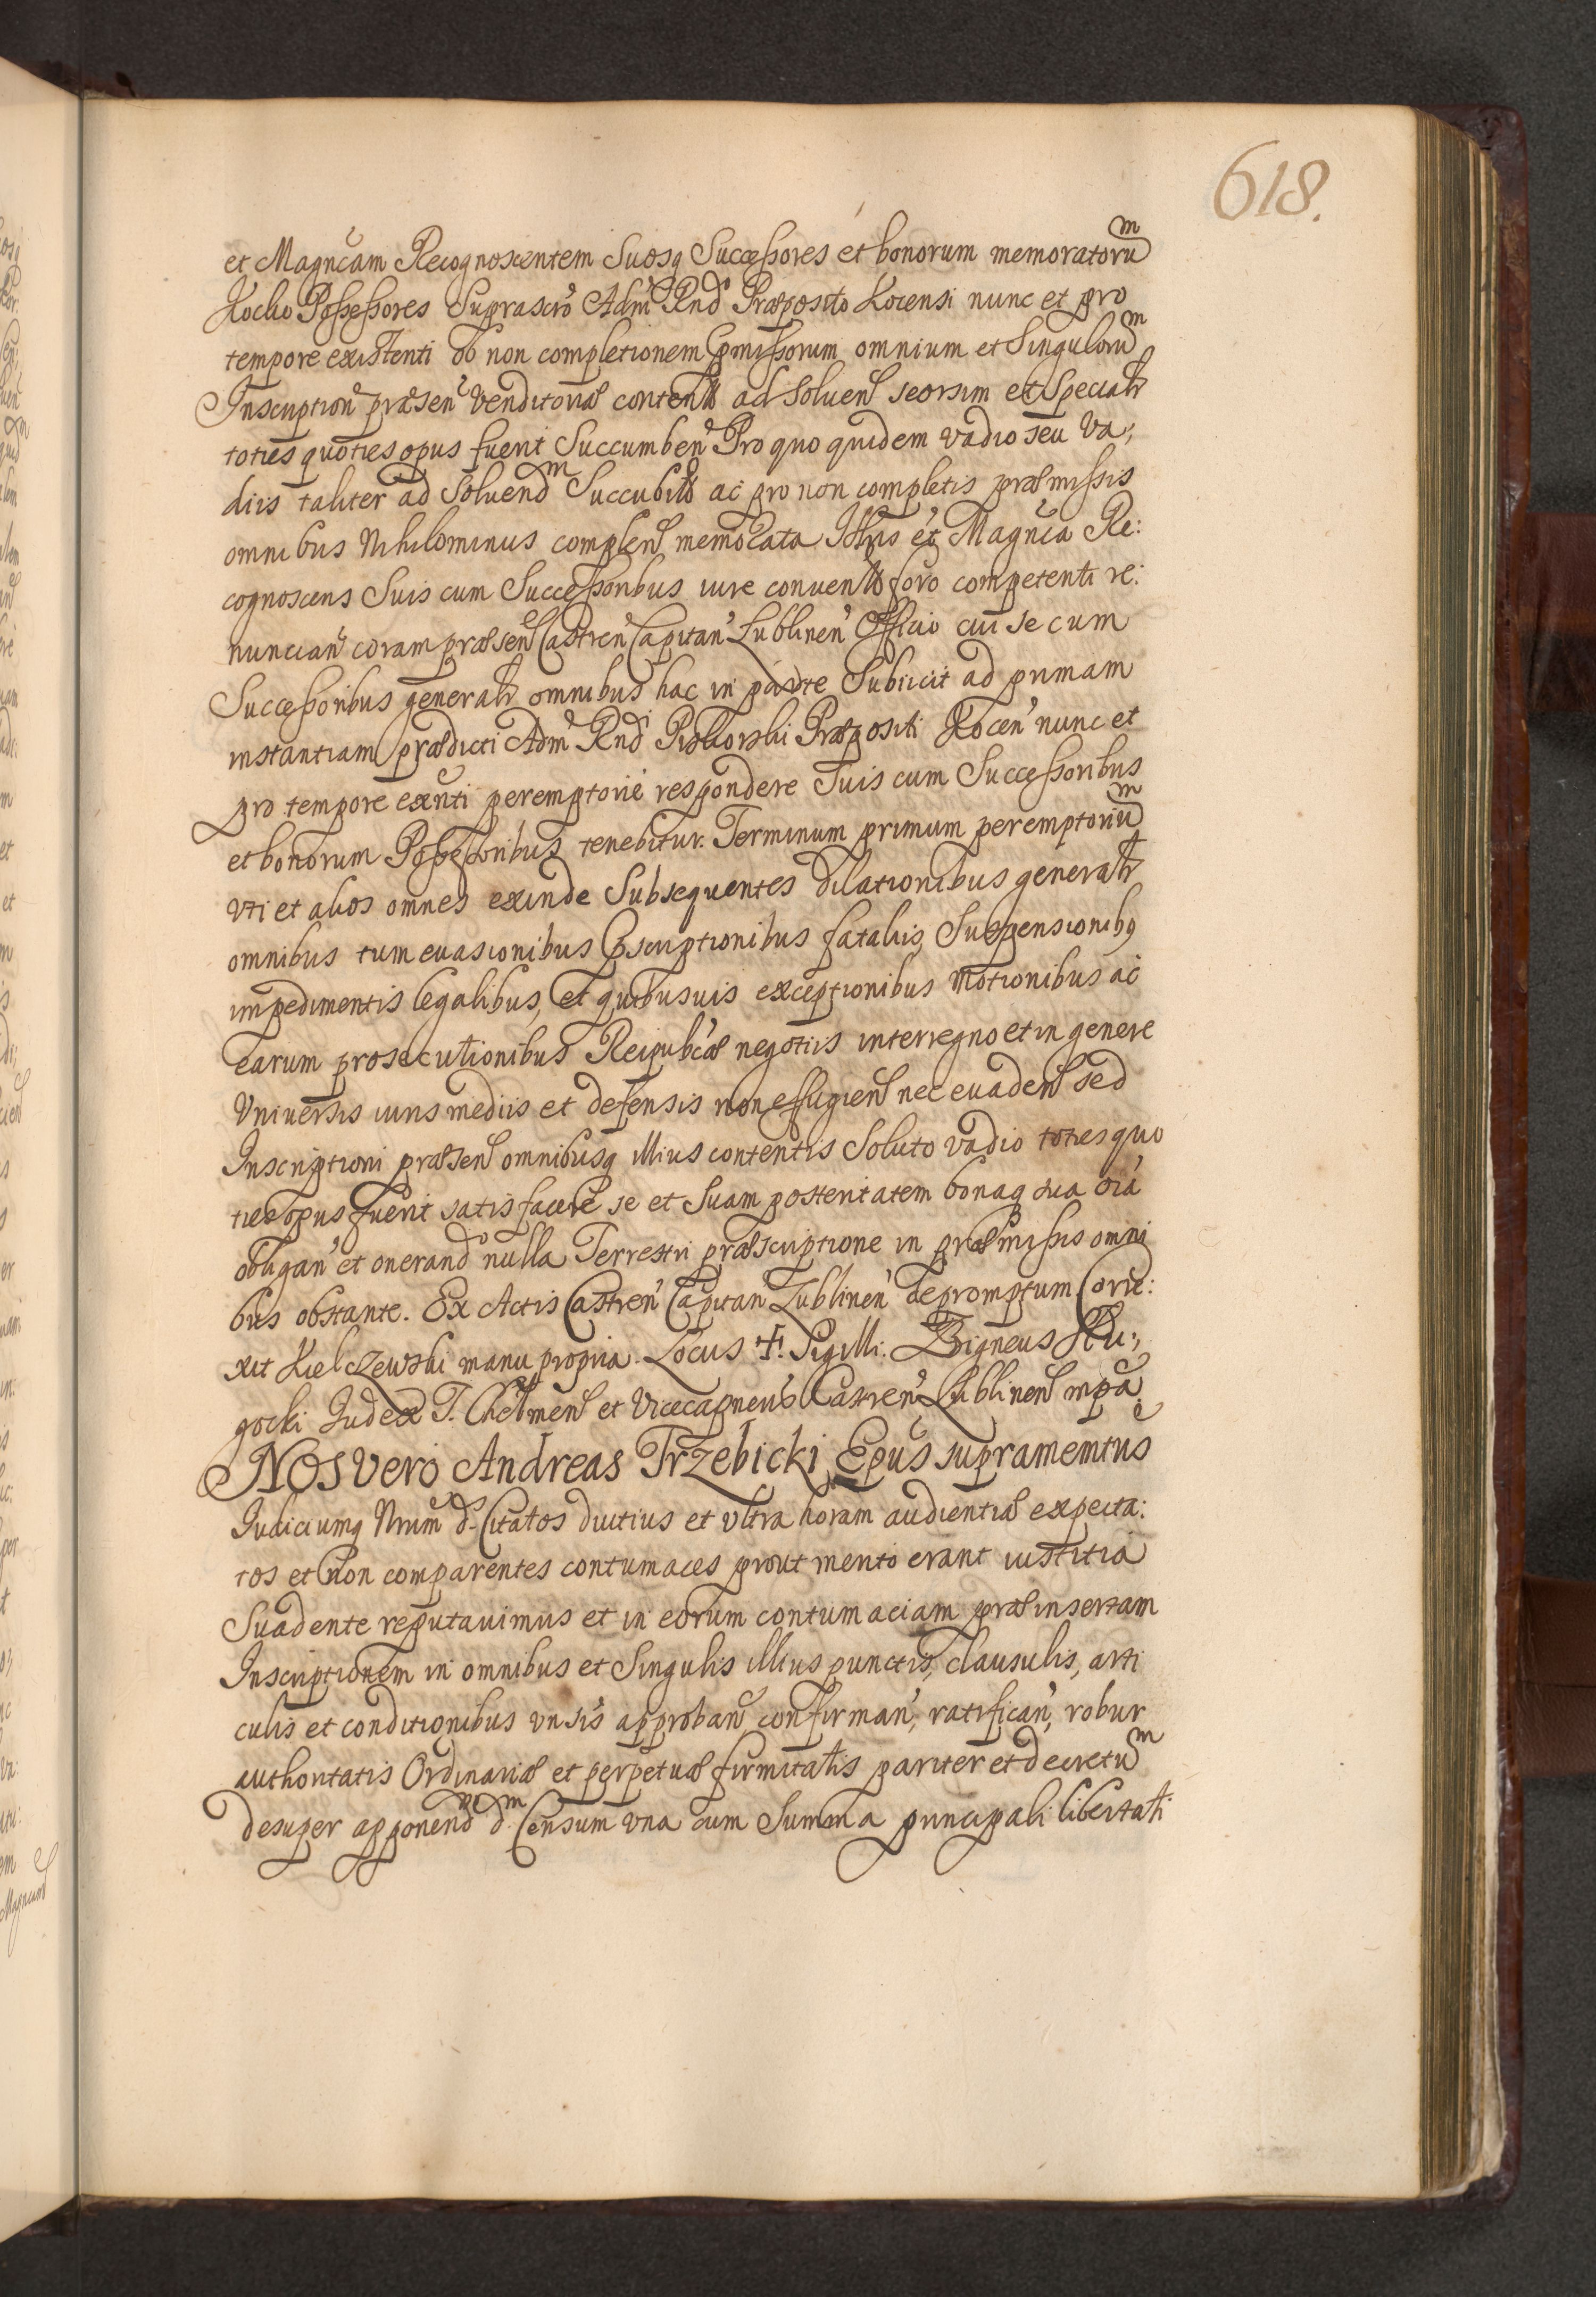 618.
et Magnĉam Recognoscentem Suosq Successores et bonorum memoratorũ
Kocko Possessores Suprascrõ Adm̃ Rnd̃ Præposito Kocensi nunc et pro
tempore existenti ob non completionem Pmissorum omnium et Singulorũ
Inscription̑ præsen̑ venditoriæ content̃ ad solven̑ seorsim et specialr̃
toties quoties opus fuerit Succumben̑ Pro quo quidem vadio seu va,
diis taliter ad solvend̃ Succubit̃ ac pro non completis præmissis
omnibus Nihilominus complen̑ memorata Illris et Magñca Re:
cognoscens Suis cum Successoribus iure convent̃ foro competenti re:
nuncian̑ coram præsen̑ Castren̑ Capitan̑ Lublinen̑ Officio cui se cum
Successoribus generalr̃ omnibus hac in parte Subiicit ad primam
instantiam prædicti Adm̃ Rnd̃ Piskorski Præpositi Kocen̑ nunc et
pro tempore exñti peremptorie respondere Suis cum Successoribus
et bonorum Possessoribus tenebitur. Terminum primum peremptoriũ
uti et alios omnes exinde Subsequentes dilationibus generalr̃
omnibus tum evasionibus Pscriptionibus fataliis, Suspensionibq
impedimentis legalibus, et quibusvis exceptionibus Motionibus ac
earum prosecutionibus Reipublĉæ negotiis interregno et in genere
Universis iuris mediis et defensis non effugien̑ nec evaden̑ sed
Inscriptioni præsen̑ omnibusq illius contentis Soluto vadio toties quo
ties opus fuerit satisfacere se et Suam posteritatem bonaq sua oĩa
obligan̑ et onerand̃ nulla Terrestri præscriptione in præmissis omni
bus obstante. Ex Actis Castren̑ Capitan Lublinen̑ depromptum. Corre:
xit Kielczewski manu propria. Locus ✝. Sigilli. Zbigneus Hu,
gocki Judex T. Chelmen̑ et Vicecapneus Castren̑ Lublinen̑ mpã.
NOS vero Andreas Trzebicki Epũs supramemtus
Judiciumq Nrum̃ d. Citatos diutius et ultra horam audientiæ expecta:
tos et non comparentes contumaces prout merito erant iustitia
Suadente reputavimus et in eorum contumaciam præinsertam
Inscriptionem in omnibus et Singulis illius punctis, clausulis, arti
culis et conditionibus unsis approban̑, confirman̑, ratifican̑, robur
authoritatis Ordinariæ et perpetuæ firmitatis pariter et decretũ
desuper apponend̃ d. Censum una cum Summa principali libertati